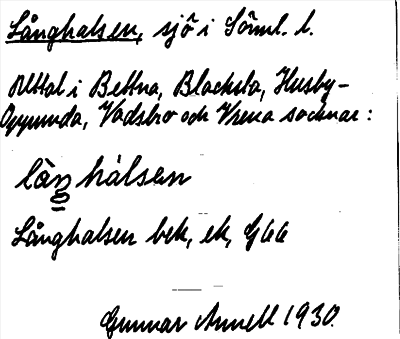 Långhalsen, sjö i Söml. l.
Uttal i Bettna, Blacksta, Husby-
Oppunda, Vadsbro och Vrena socknar:
làŋ hálsen
Långhalsen bek, ek, G66
Gunnar Annell 1930.